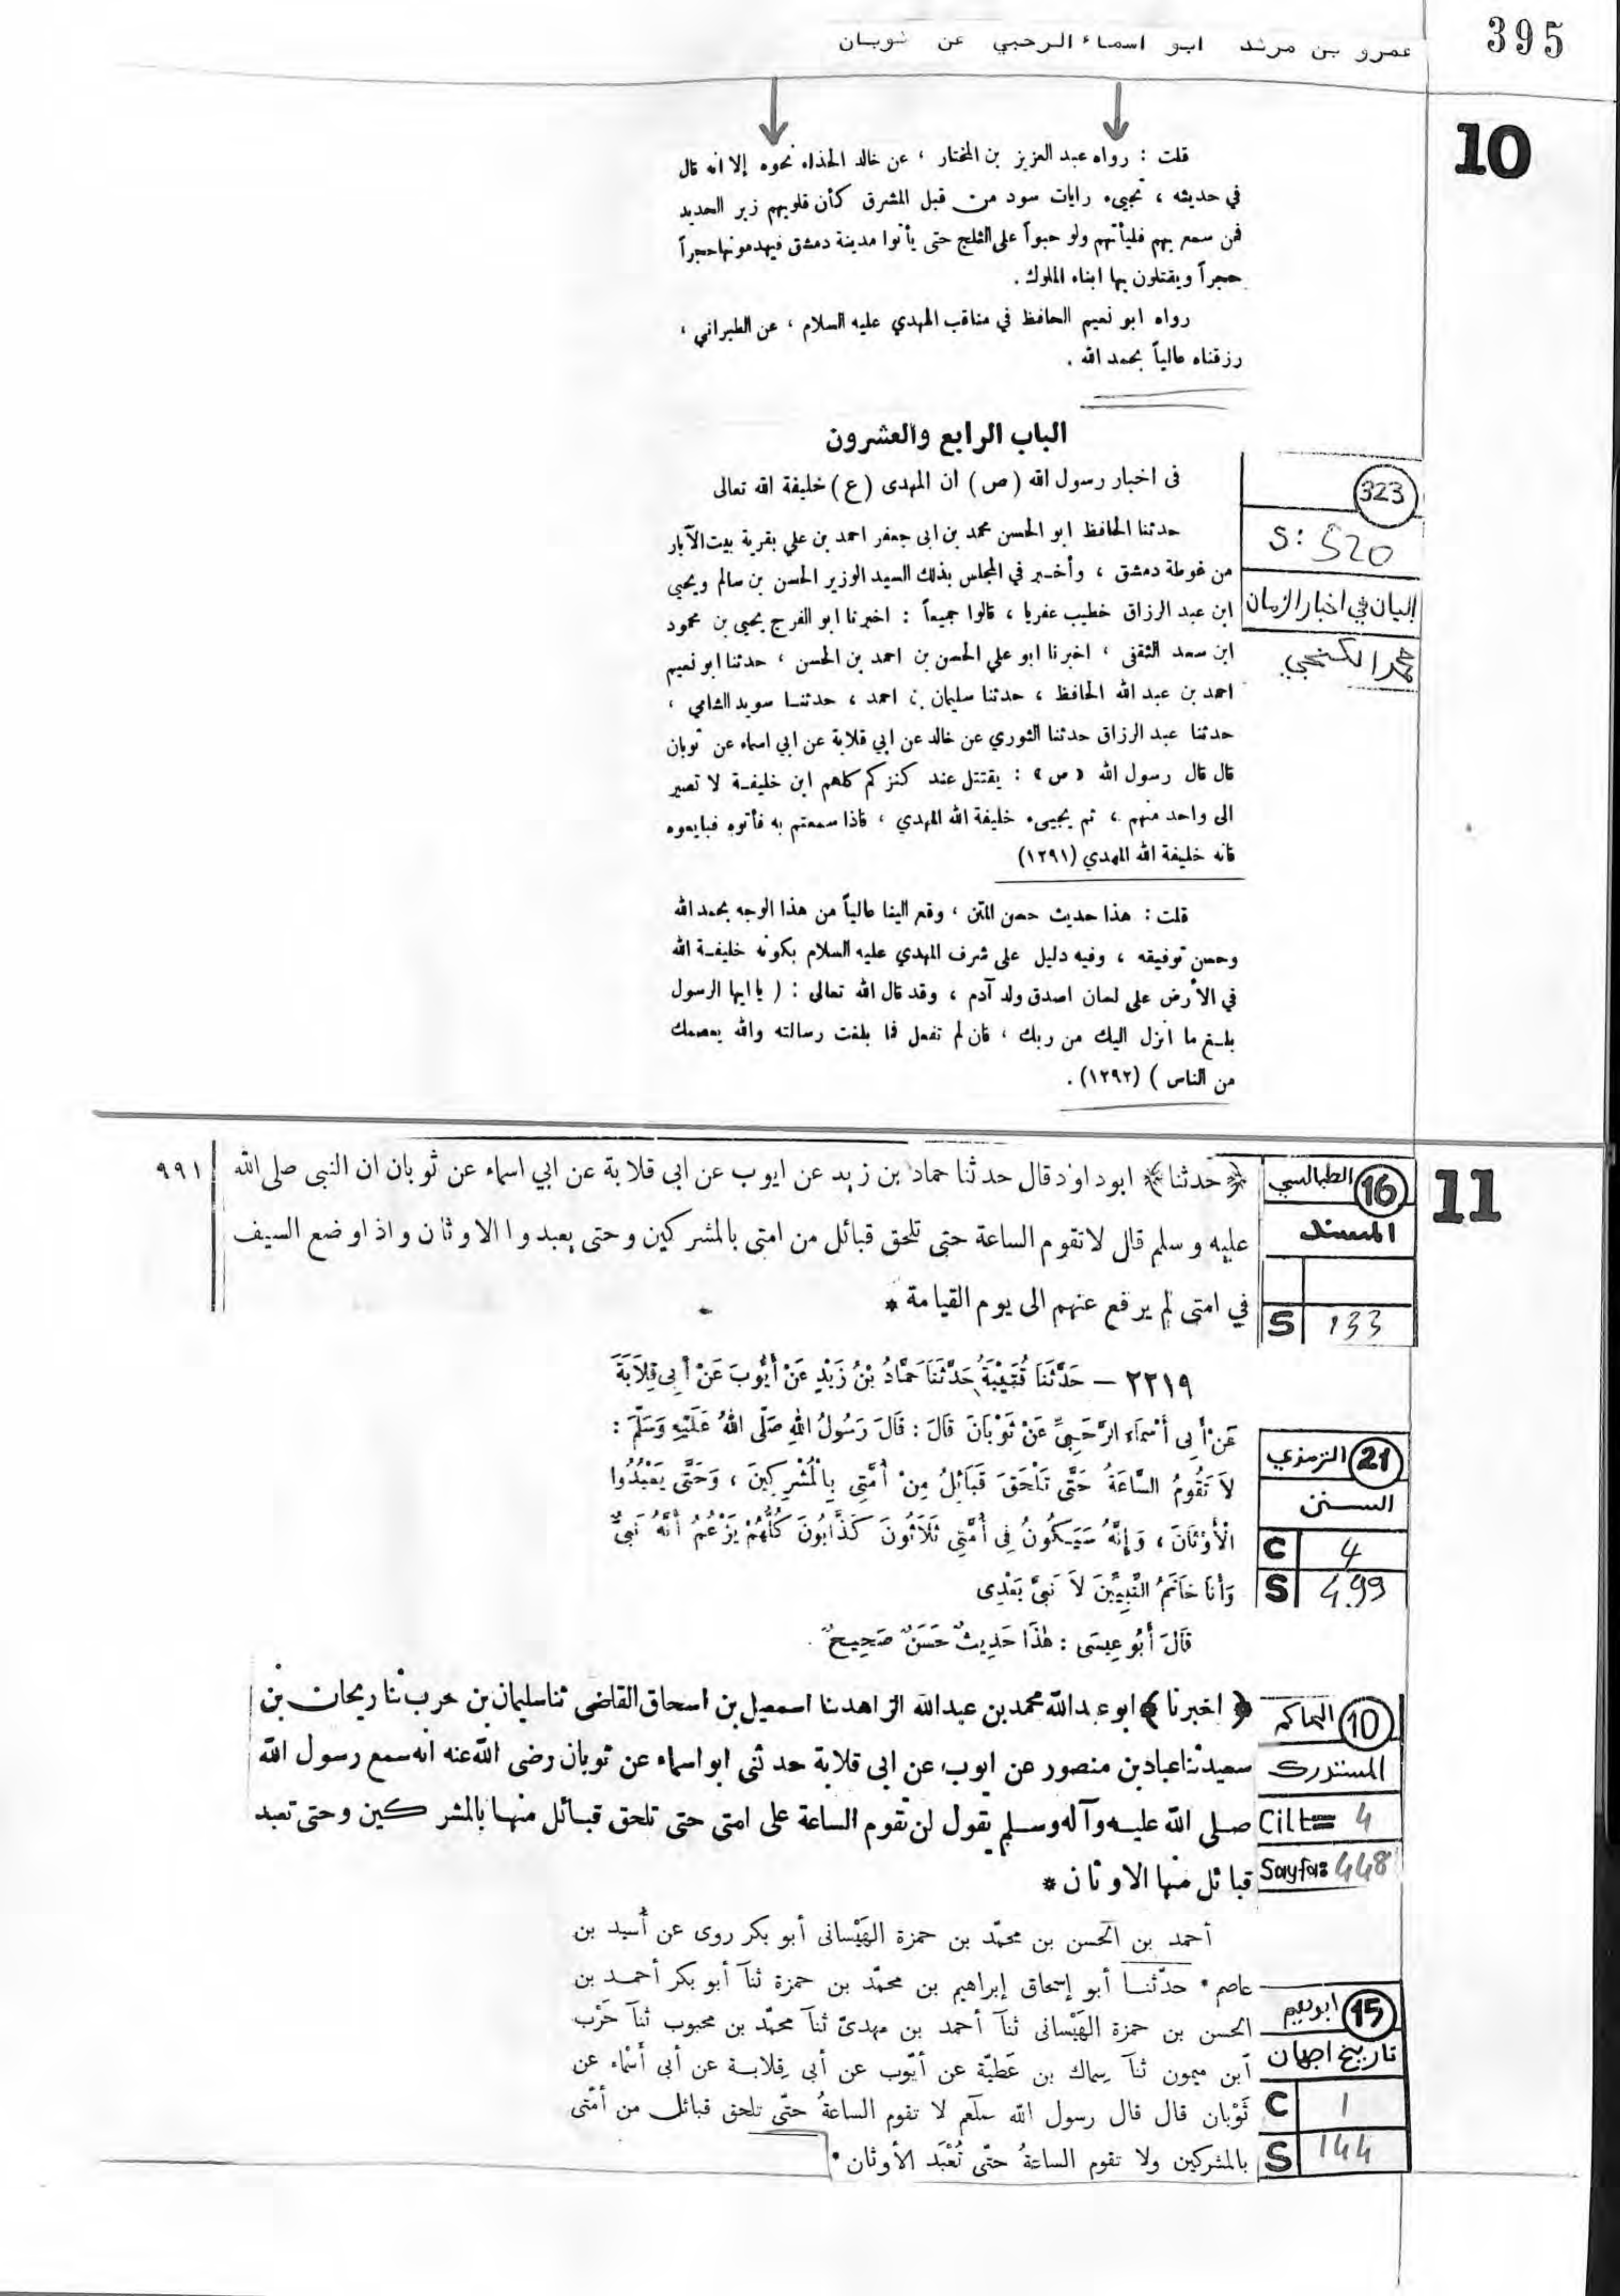 395
عمرو بن مرثد ابو اسماء الرحبي عن ثوبان
10
قلت : رواه عبد العزيز بن المختار ، عن خالد الحذاء نحوه إلا انه قال
في حديثه ، تجيىء رايات سود من قبل المشرق كأن قلوبهم زبر الحديد
فمن سمع بهم فليأتهم ولو حبواً على الثلج حتى يأتوا مدينة دمشق فيهدمونها حجراً
حجراً ويقتلون بها ابناء الملوك .
رواه ابو نعيم الحافظ في مناقب المهدي عليه السلام ، عن الطبراني ،
رزقناه عالياً بحمد الله .
الباب الرابع والعشرون
فى اخبار رسول الله (ص) ان المهدى (ع) خليفة الله تعالى
323
S: 520
البيان في اخبار الزمان
محمد الكنجي
حدثنا الحافظ ابو الحسن محمد بن ابى جعفر احمد بن علي بقرية بيت الآبار
من غوطة دمشق ، وأخبر في المجلس بذلك السيد الوزير الحسن بن سالم ويحيى
ابن عبد الرزاق خطيب عفربا ، قالوا جميعاً : اخبرنا ابو الفرج يحيى بن محمود
ابن سعد الثقفى ، اخبرنا ابو علي الحسن بن احمد بن الحسن ، حدثنا ابو نعيم
احمد بن عبد الله الحافظ ، حدثنا سليمان بن احمد ، حدثنا سويد الشامي ،
حدثنا عبد الرزاق حدثنا الثوري عن خالد عن ابي قلابة عن ابي اسماء عن ثوبان
قال قال رسول الله «ص» : يقتتل عند كنزكم كلهم ابن خليفة لا تصير
الى واحد منهم ، ثم يجيىء خليفة الله المهدي ، فاذا سمعتم به فأتوه فبايعوه
فانه خليفة الله المهدي (١٢٩١)
قلت : هذا حديث حسن المتن ، وقع الينا عالياً من هذا الوجه بحمد الله
وحسن توفيقه ، وفيه دليل على شرف المهدي عليه السلام بكونه خليفة الله
في الأرض على لسان اصدق ولد آدم ، وقد قال الله تعالى : ( يا ايها الرسول
بلغ ما انزل اليك من ربك ، فان لم تفعل فما بلغت رسالته والله يعصمك
من الناس ) (١٢٩٢) .
11
16 الطيالسي
المسند
S 133
﴿حدثنا﴾ ابوداود قال حدثنا حماد بن زيد عن ايوب عن ابى قلابة عن ابي اسماء عن ثوبان ان النبى صلى الله ٩٩١
عليه وسلم قال لا تقوم الساعة حتى تلحق قبائل من امتى بالمشركين وحتى يعبدوا الاوثان واذا وضع السيف
في امتى لم يرفع عنهم الى يوم القيامة *
٢٢١٩ – حَدَّثَنَا قُتَيْبَةُ حَدَّثَنَا حَمَّادُ بْنُ زَيْدٍ عَنْ أَيُّوبَ عَنْ أَبِى قِلَابَةَ
عَنْ أَبِى أَسْمَاءَ الرَّحَبِيِّ عَنْ ثَوْبَانَ قَالَ : قَالَ رَسُولُ اللهِ صَلَّى اللهُ عَلَيْهِ وَسَلَّمَ :
لَا تَقُومُ السَّاعَةُ حَتَّى تَلْحَقَ قَبَائِلُ مِنْ أُمَّتِى بِالْمُشْرِكِينَ ، وَحَتَّى يَعْبُدُوا
الْأَوْثَانَ ، وَإِنَّهُ سَيَكُونُ فِى أُمَّتِى ثَلَاثُونَ كَذَّابُونَ كُلُّهُمْ يَزْعُمُ أَنَّهُ نَبِىٌّ
وَأَنَا خَاتَمُ النَّبِيِّينَ لَا نَبِىَّ بَعْدِى
قَالَ أَبُو عِيسَى : هٰذَا حَدِيثٌ حَسَنٌ صَحِيحٌ .
21 الترمذي
السنن
C 4
S 499
﴿اخبرنا﴾ ابو عبدالله محمد بن عبدالله الزاهد ثنا اسمعيل بن اسحاق القاضى ثنا سليمان بن حرب ثنا ريحان بن
سعيد ثنا عباد بن منصور عن ايوب عن ابى قلابة حدثنى ابو اسماء عن ثوبان رضى الله عنه انه سمع رسول الله
صلى الله عليه وآله وسلم يقول لن تقوم الساعة على امتى حتى تلحق قبائل منها بالمشركين وحتى تعبد
قبائل منها الاوثان *
10 الحاكم
المستدرك
Cilt= 4
Sayfa: 448
أحمد بن الحسن بن محمّد بن حمزة الهَيْسانى أبو بكر روى عن أُسيد بن
عاصم • حدّثنا أبو إسحاق إبراهيم بن محمّد بن حمزة ثنآ أبو بكر أحمد بن
الحسن بن حمزة الهَيْسانى ثنآ أحمد بن مهدىّ ثنآ محمّد بن محبوب ثنآ حَرْب
آبن ميمون ثنآ سِماك بن عَطيّة عن أيّوب عن أبى قِلابة عن أبى أَسْماء عن
ثَوْبان قال قال رسول الله صلّعم لا تقوم الساعةُ حتّى تلحق قبائل من أُمّتى
بالمشركين ولا تقوم الساعةُ حتّى تُعْبَد الأوثان •
15 ابو نعيم
تاريخ اصبهان
C 1
S 144